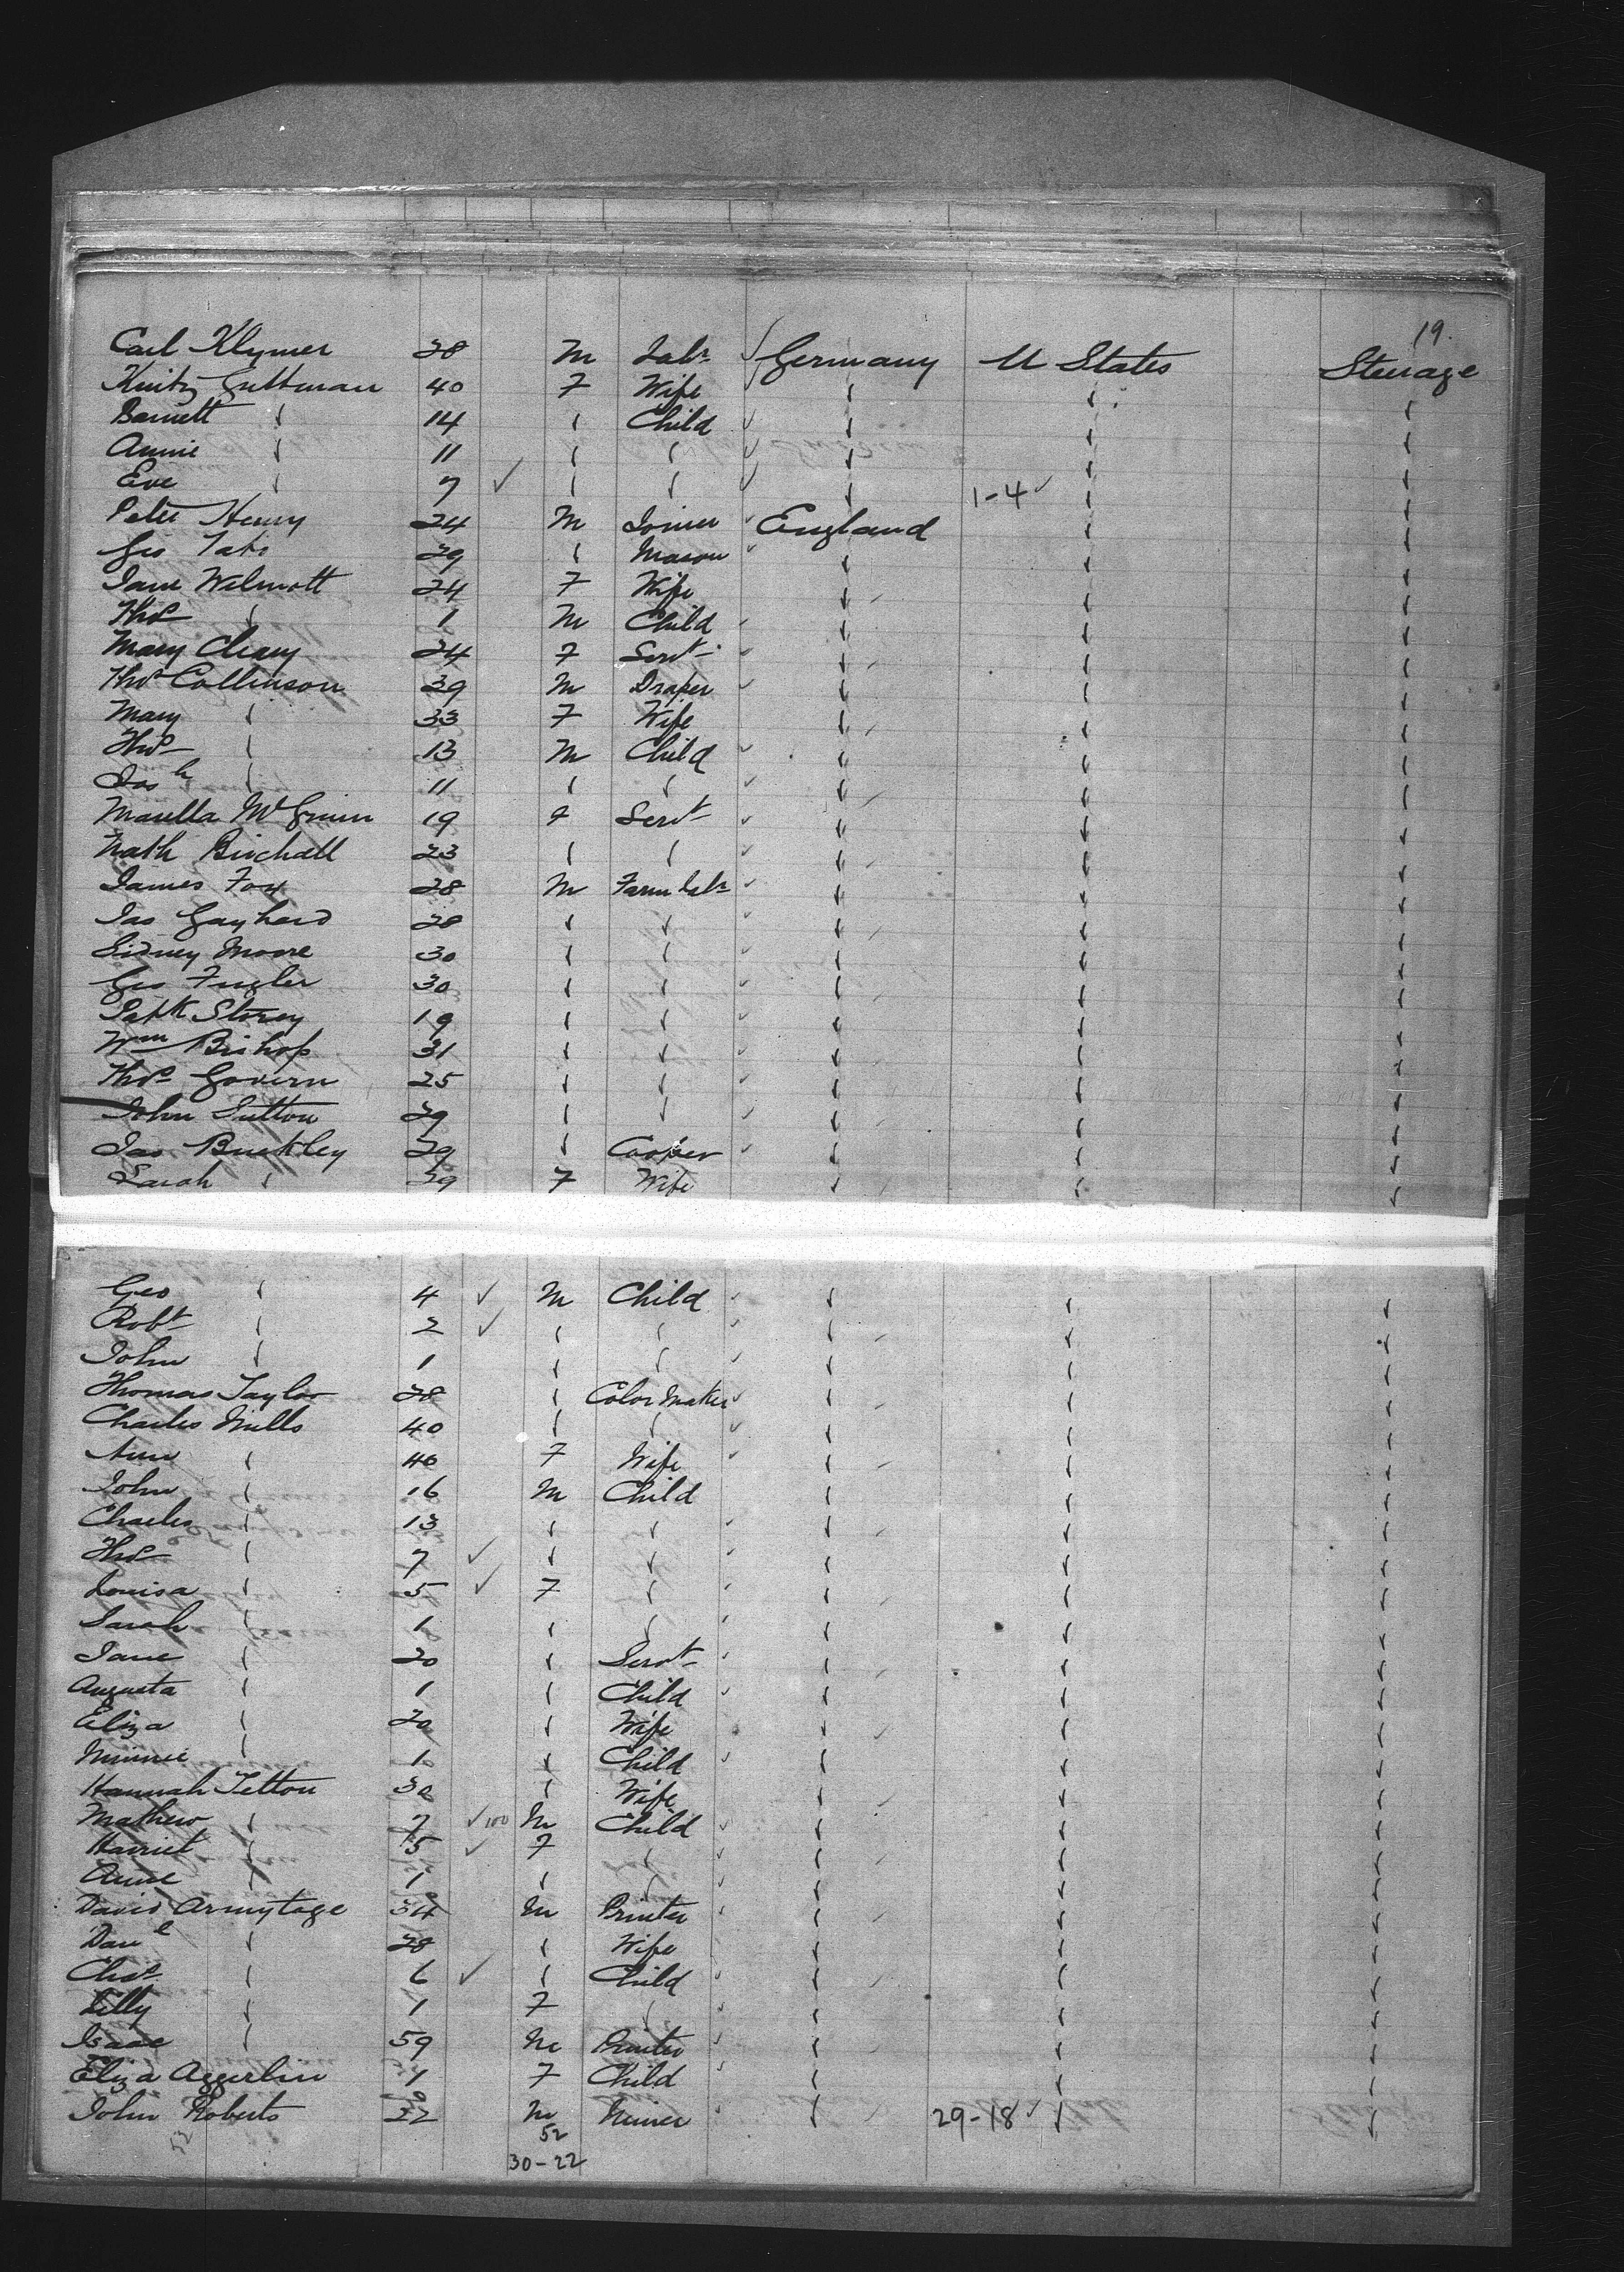 19.
Carl Klymer 28 M Labr Germany U States Steerage
Kuitz Guttman 40 F Wife " " "
Barnett " 14 " Child " " "
Annie " 11 " " " " "
Eve " 7 ✓ " " " 1-4 ✓ " "
Peter Henry 24 M Joiner England " "
Geo 29 " Mason " " "
Jane Wilmott 24 F Wife " " "
Thos " 1 M Child " " "
Mary Cleary 24 F Servt " " "
Thos Collinson 39 M Draper " " "
Mary " 33 F Wife " " "
Thos " 13 M Child " " "
Josh " 11 " " " " "
19 F Servt " " "
Birchall 23 " " " " "
James Fox 28 M Farm Labr " " "
Jas Gayherd 28 " " " " "
Sidney Moore 30 " " " " "
Geo Fugler 30 " " " " "
Patk Storey 19 " " " " "
Wm Bishop 31 " " " " "
Thos Govern 25 " " " " "
John Sutton 29 " " " " "
Jas Buckley 29 " Cooper " " "
Sarah " 29 F Wife " " "
Geo " 4 ✓ M Child " " "
Robt " 2 ✓ " " " " "
John " 1 " " " " "
Thomas Taylor 28 " Color Maker " " "
Charles Mills 40 " " " " "
Ann " 40 F Wife " " "
John " 16 M Child " " "
Charles " 13 " " " " "
Thos " 7 ✓ " " " " "
Louisa " 5 ✓ F " " " "
Sarah " 1 " " " " "
Jane " 20 " Servt " " "
Augusta " 1 " Child " " "
Eliza " 20 " Wife " " "
Minnie " 1 " Child " " "
Hannah Tetton 30 " Wife " " "
Mathew " 7 ✓ 100 M Child " " "
Harriet " 5 ✓ F " " " "
Anne " 1 " " " " "
David Armytage 34 M Printer " " "
Danl " 28 " Wife " " "
Chas " 6 ✓ " Child " " "
Lilly " 1 F " " " "
Isaac " 59 M Printer " " "
Eliza Aggerlin 1 F Child " " "
John Roberts 22 M Miner " 29-18 ✓ " "
52 52
30-22